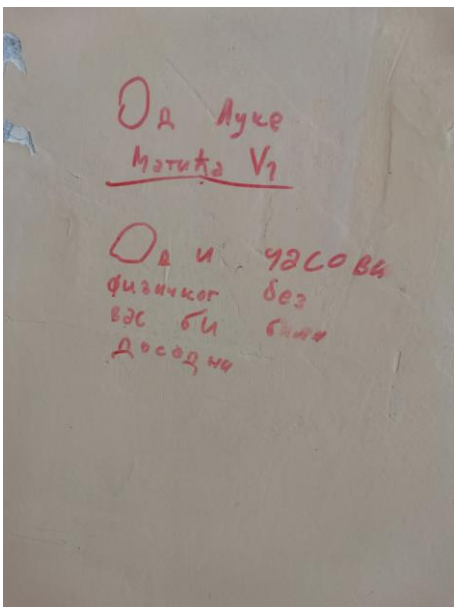 Од Луке
Матића V1
Од и часови
физичког без
вас би били
досадни